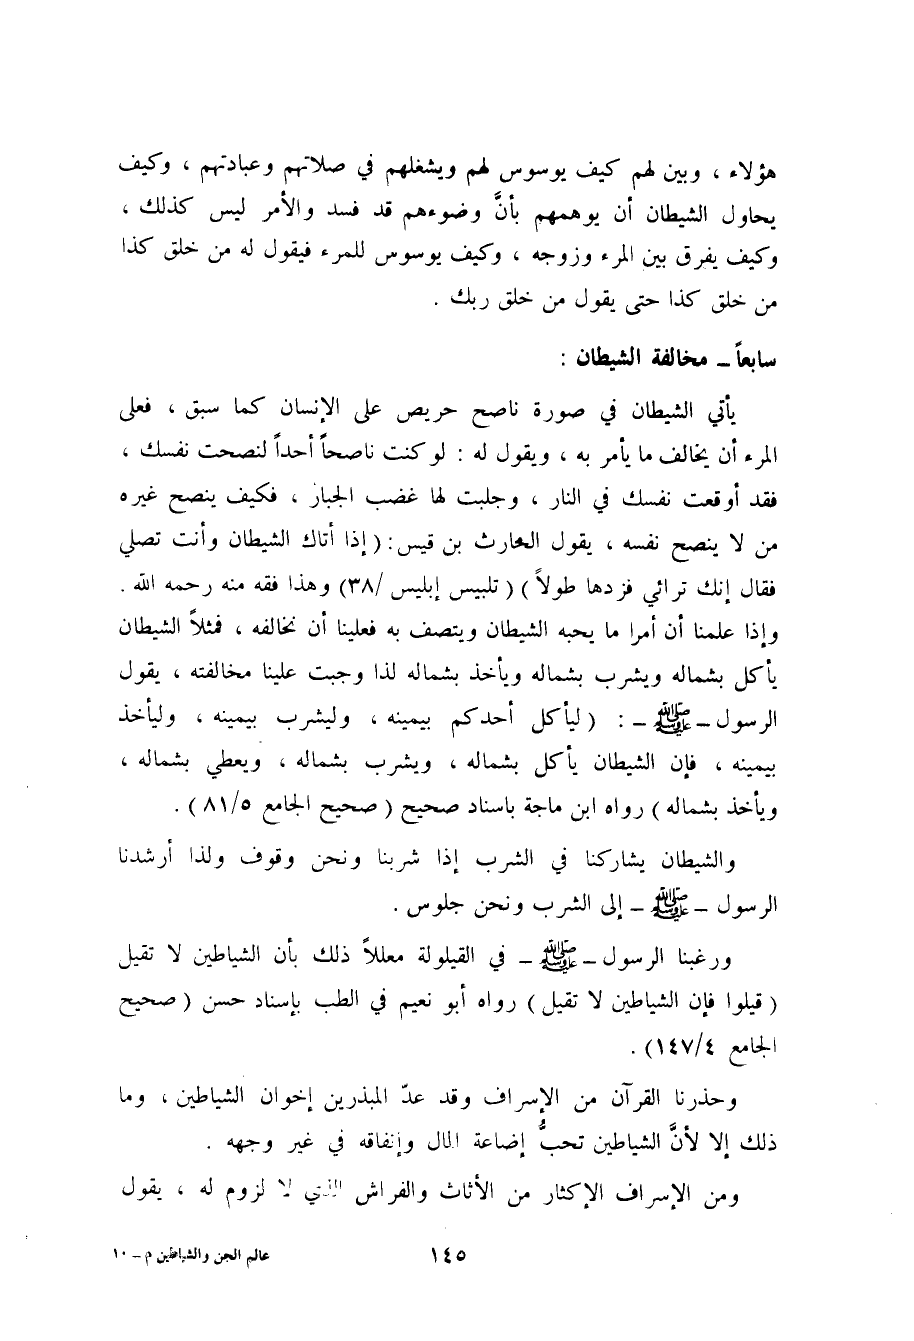 هؤلاء ، وبين لهم كيف يوسوس لهم ويشغلهم في صلاتهم وعبادتهم ، وكيف
يحاول الشيطان أن يوهمهم بأنَّ وضوءهم قد فسد والأمر ليس كذلك ،
وكيف يفرق بين المرء وزوجه ، وكيف يوسوس للمرء فيقول له من خلق كذا
من خلق كذا حتى يقول من خلق ربك .
سابعاً ـ مخالفة الشيطان :
يأتي الشيطان في صورة ناصح حريص على الإنسان كما سبق ، فعلى
المرء أن يخالف ما يأمر به ، ويقول له : لو كنت ناصحاً أحداً لنصحت نفسك ،
فقد أوقعت نفسك في النار ، وجلبت لها غضب الجبار ، فكيف ينصح غيره
من لا ينصح نفسه ، يقول الحارث بن قيس : ( إذا أتاك الشيطان وأنت تصلي
فقال إنك ترائي فزدها طولاً ) ( تلبيس إبليس /٣٨) وهذا فقه منه رحمه الله .
وإذا علمنا أن أمرا ما يحبه الشيطان ويتصف به فعلينا أن نخالفه ، فمثلاً الشيطان
يأكل بشماله ويشرب بشماله ويأخذ بشماله لذا وجبت علينا مخالفته ، يقول
الرسول ـ ﷺ ـ : ( ليأكل أحدكم بيمينه ، وليشرب بيمينه ، وليأخذ
بيمينه ، فإن الشيطان يأكل بشماله ، ويشرب بشماله ، ويعطي بشماله ،
ويأخذ بشماله ) رواه ابن ماجة باسناد صحيح ( صحيح الجامع ٨١/٥ ) .
والشيطان يشاركنا في الشرب إذا شربنا ونحن وقوف ولذا أرشدنا
الرسول ـ ﷺ ـ إلى الشرب ونحن جلوس .
ورغبنا الرسول ـ ﷺ ـ في القيلولة معللاً ذلك بأن الشياطين لا تقيل
( قيلوا فإن الشياطين لا تقيل ) رواه أبو نعيم في الطب بإسناد حسن ( صحيح
الجامع ١٤٧/٤) .
وحذرنا القرآن من الإسراف وقد عدّ المبذرين إخوان الشياطين ، وما
ذلك إلا لأنَّ الشياطين تحبُّ إضاعة المال وإنفاقه في غير وجهه .
ومن الإسراف الإكثار من الأثاث والفراش الذي لا لزوم له ، يقول
١٤٥
عالم الجن والشياطين م ـ ١٠